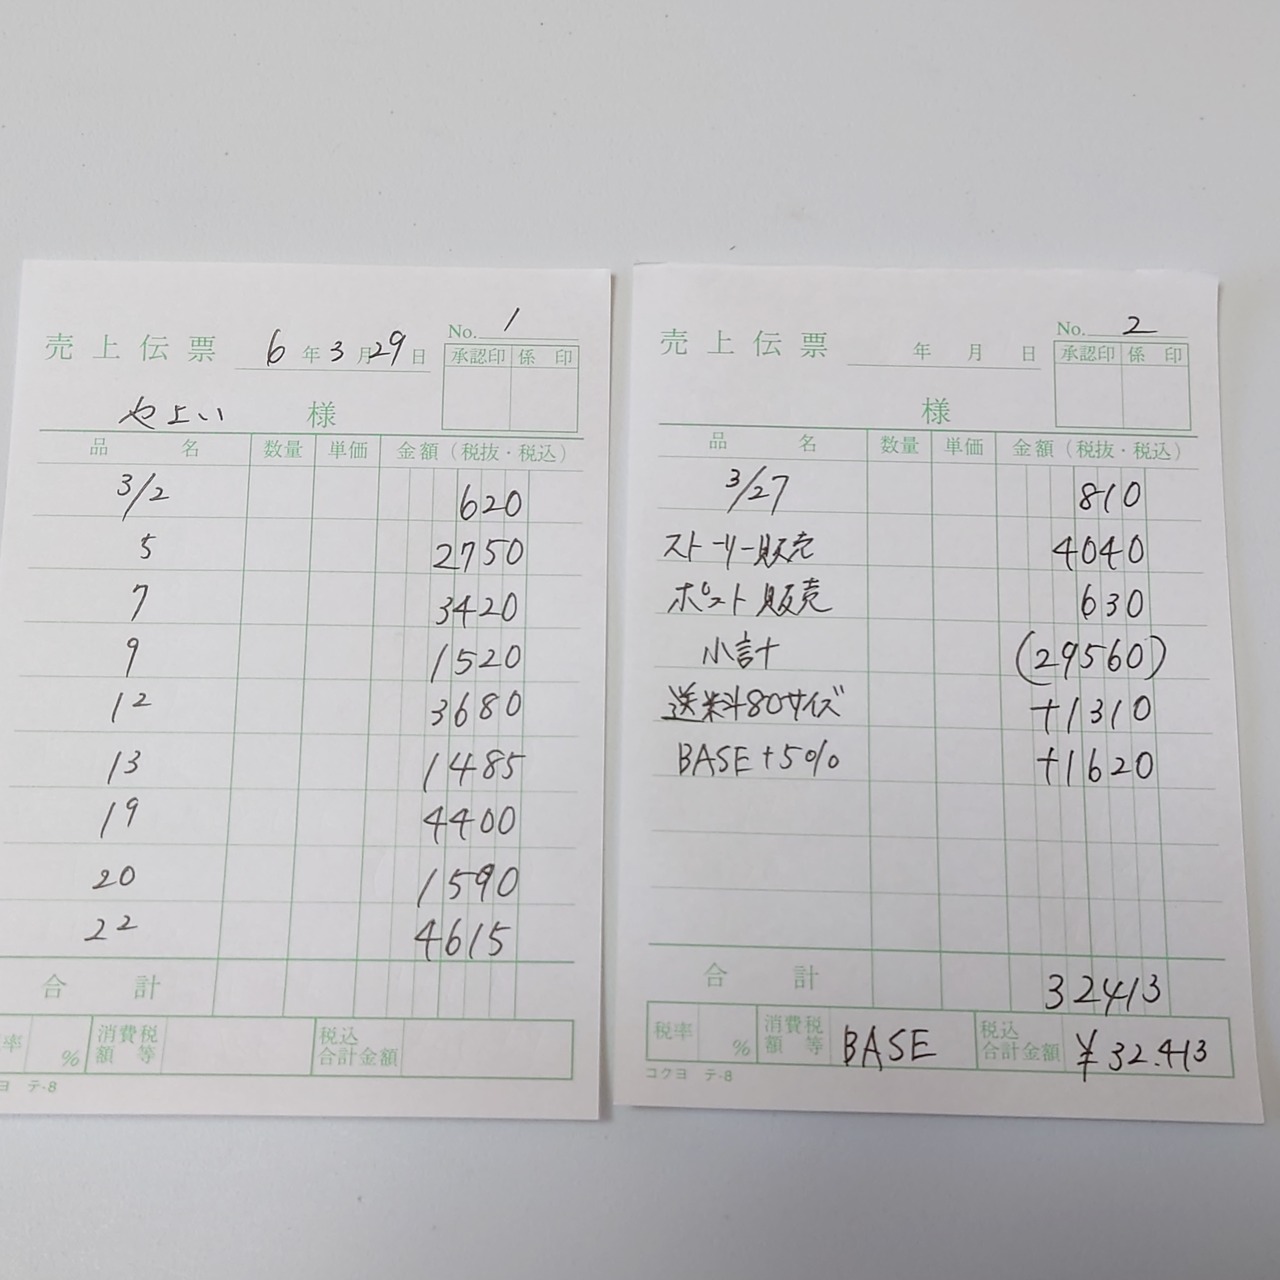 売上伝票 6年3月29日 No. 1
承認印 係印
やよい 様
品名 数量 単価 金額(税抜・税込)
3/2 620
5 2750
7 3420
9 1520
12 3680
13 1485
19 4400
20 1590
22 4615
合計
率 % 消費税額等 税込合計金額
ヨ テ-8
売上伝票 年 月 日 No. 2
承認印 係印
様
品名 数量 単価 金額(税抜・税込)
3/27 810
ストーリー販売 4040
ポスト販売 630
小計 (29560)
送料80サイズ +1310
BASE+5% +1620
合計 32413
税率 % 消費税額等 BASE 税込合計金額 ¥32.413
コクヨ テ-8